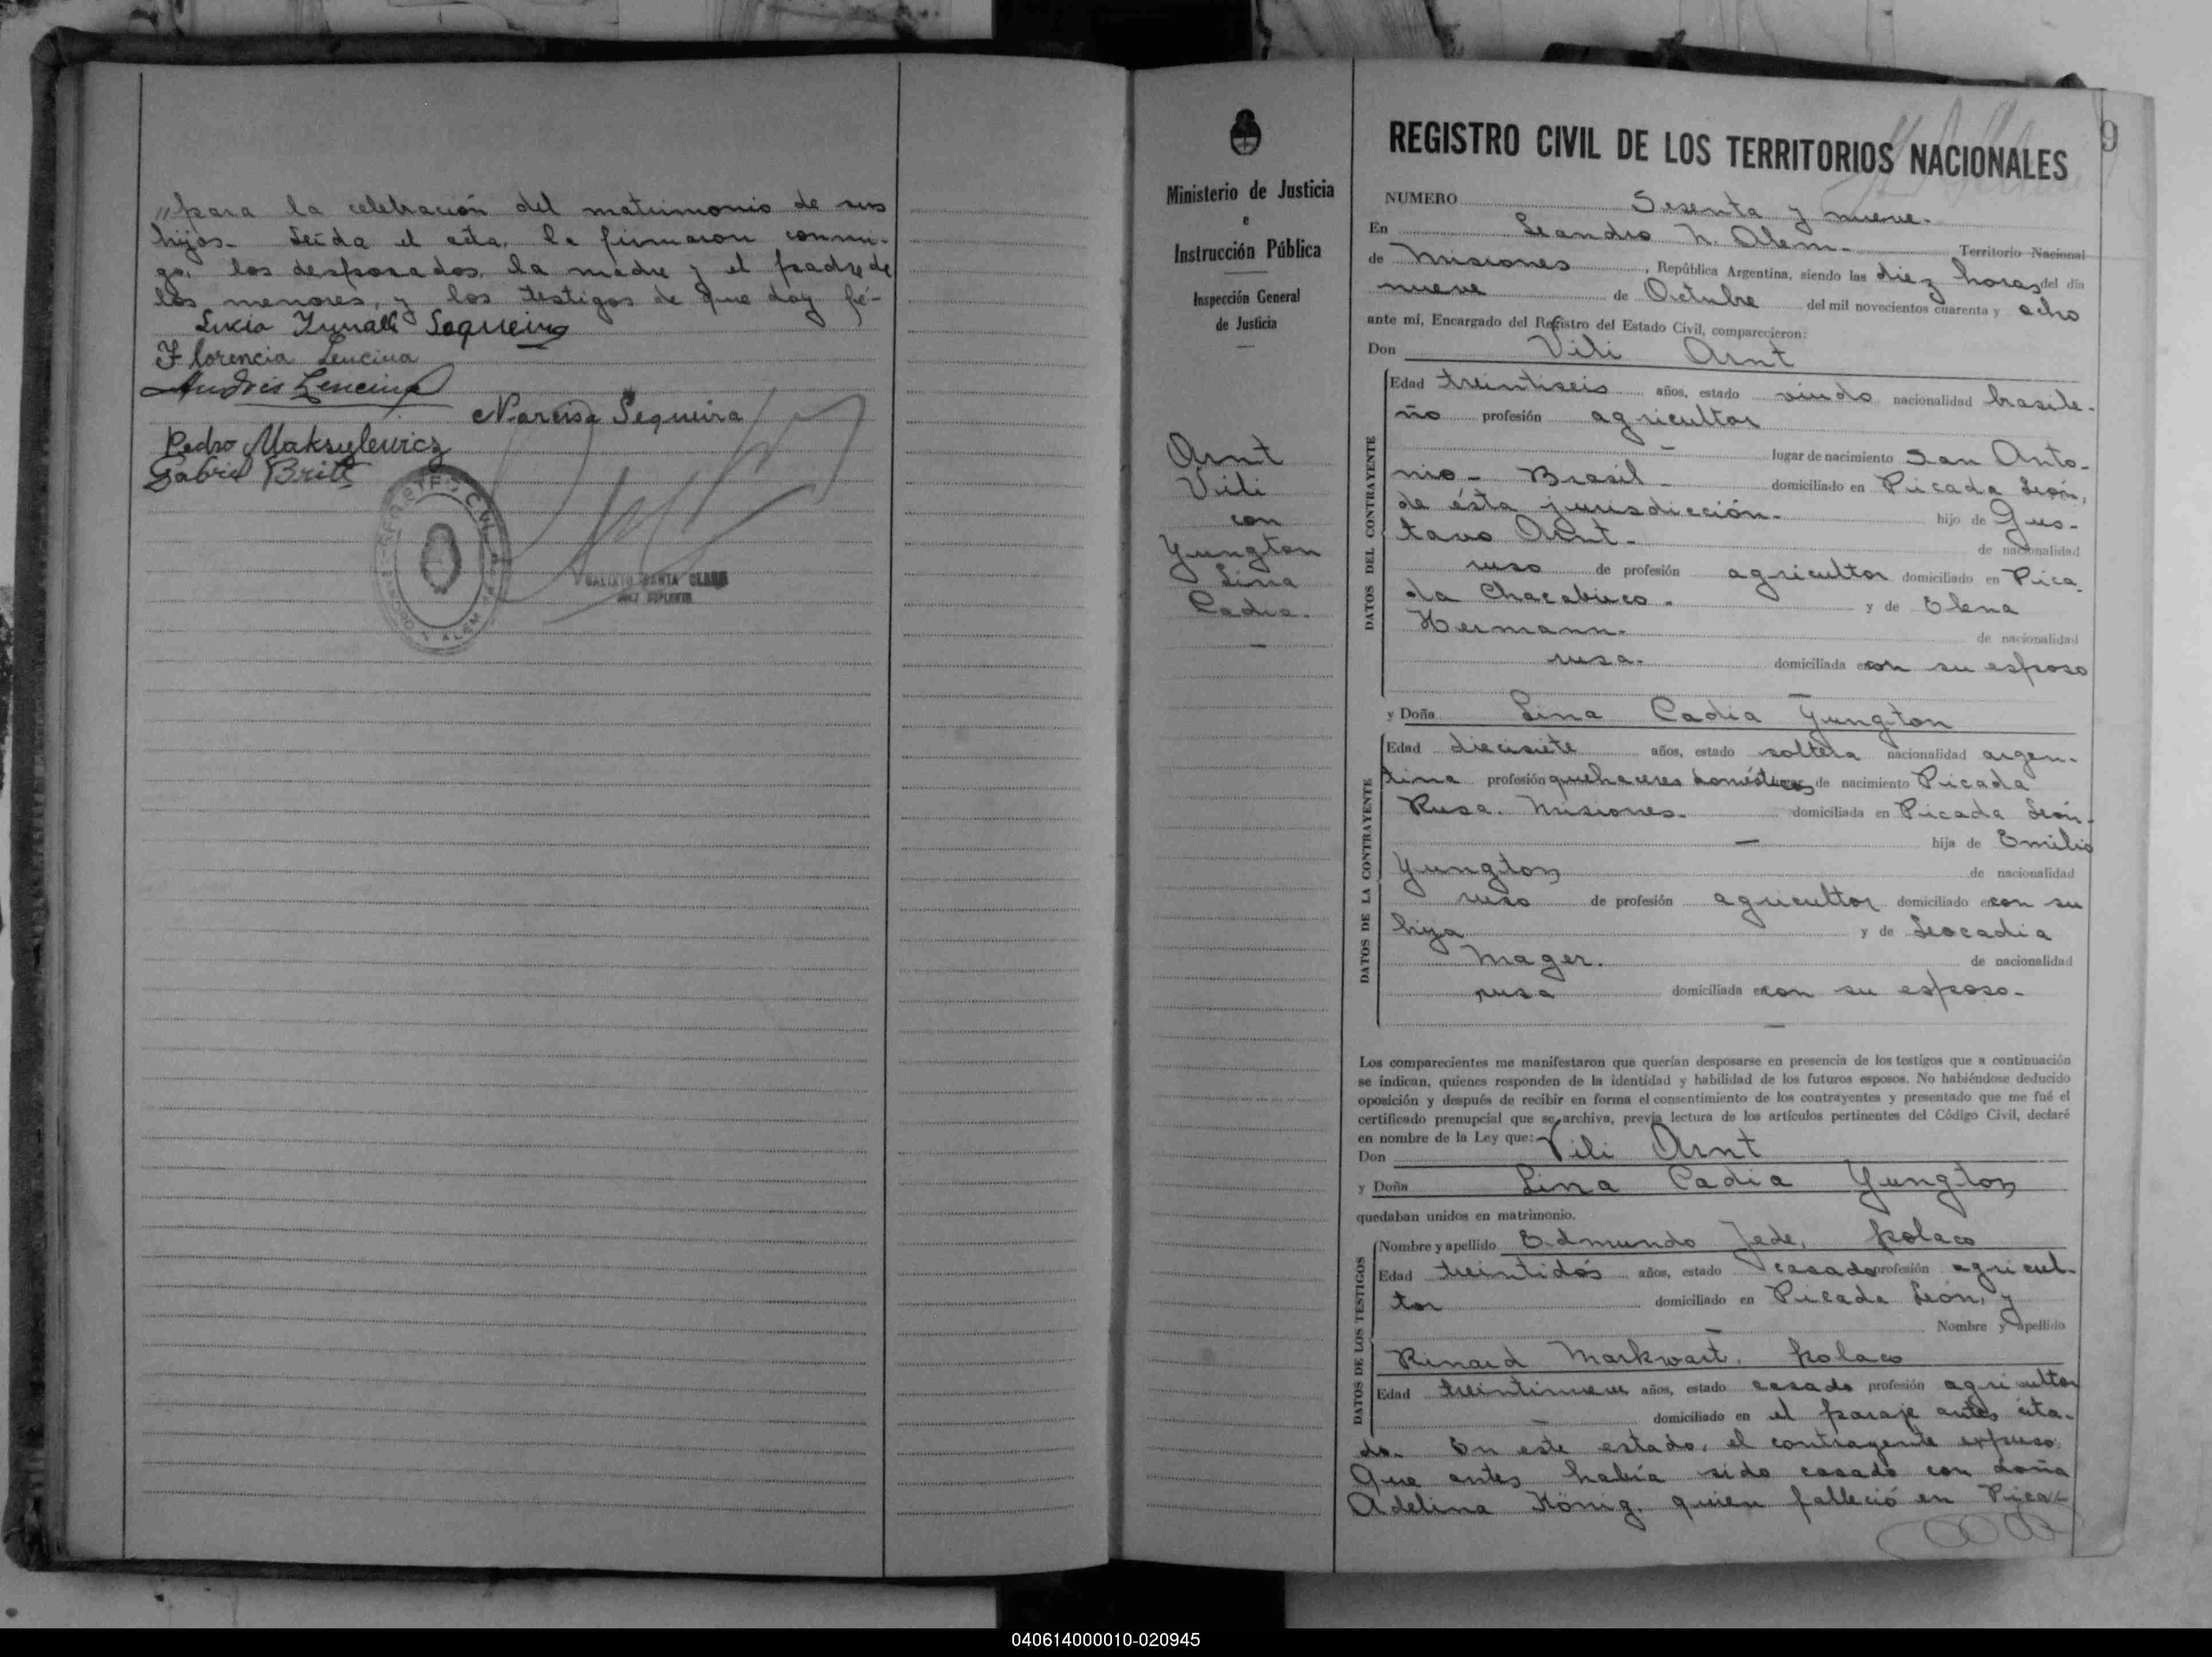 "para la celebración del matrimonio de sus
hijos- Leída el acta, la firmaron conmi-
go, los desposados, la madre y el padre de
los menores, y los testigos de que doy fé-
Sequeira
Florencia Lencina
Andrés Lencina
Narcisa Sequeira
Pedro Maksylewicz
Gabriel Britt
REGISTRO CIVIL
LEANDRO N. ALEM
SANTA CLARA
JUEZ SUPLENTE
Ministerio de Justicia
e
Instrucción Pública
Inspección General
de Justicia
Arnt
Vili
con
Yungton
Lina
Cadia.
9
REGISTRO CIVIL DE LOS TERRITORIOS NACIONALES
NUMERO Sesenta y nueve.
En Leandro N. Alem- Territorio Nacional
de Misiones, República Argentina, siendo las diez horas del día
nueve de Octubre del mil novecientos cuarenta y ocho
ante mí, Encargado del Registro del Estado Civil, comparecieron:
Don Vili Arnt
DATOS DEL CONTRAYENTE
Edad treintiseis años, estado viudo nacionalidad brasile-
ño profesión agricultor
- lugar de nacimiento San Anto-
nio- Brasil- domiciliado en Picada León,
de ésta jurisdicción- hijo de Gus-
tavo Arnt- de nacionalidad
ruso de profesión agricultor domiciliado en Pica-
da Chacabuco. y de Elena
Hermann- de nacionalidad
rusa. domiciliada con su esposo
y Doña Lina Cadia Yungton
DATOS DE LA CONTRAYENTE
Edad diecisiete años, estado soltera nacionalidad argen-
tina profesión quehaceres domésticos de nacimiento Picada
Rusa. Misiones. domiciliada en Picada León.
- hija de Emilio
Yungton de nacionalidad
ruso de profesión agricultor domiciliado con su
hija y de Leocadia
Mager. de nacionalidad
rusa domiciliada con su esposo-
Los comparecientes me manifestaron que querían desposarse en presencia de los testigos que a continuación
se indican, quienes responden de la identidad y habilidad de los futuros esposos. No habiéndose deducido
oposición y después de recibir en forma el consentimiento de los contrayentes y presentado que me fué el
certificado prenupcial que se archiva, previa lectura de los artículos pertinentes del Código Civil, declaré
en nombre de la Ley que:
Don Vili Arnt
y Doña Lina Cadia Yungton
quedaban unidos en matrimonio.
DATOS DE LOS TESTIGOS
Nombre y apellido Edmundo Jede, polaco
Edad treintidós años, estado casado profesión agricul-
tor domiciliado en Picada León, y
- Nombre y apellido
Rinard Markwart, polaco
Edad treintinueve años, estado casado profesión agricultor
- domiciliado en el paraje antes cita-
do- En este estado, el contrayente expuso:
Que antes había sido casado con doña
Adelina König, quien falleció en Pica-
040614000010-020945